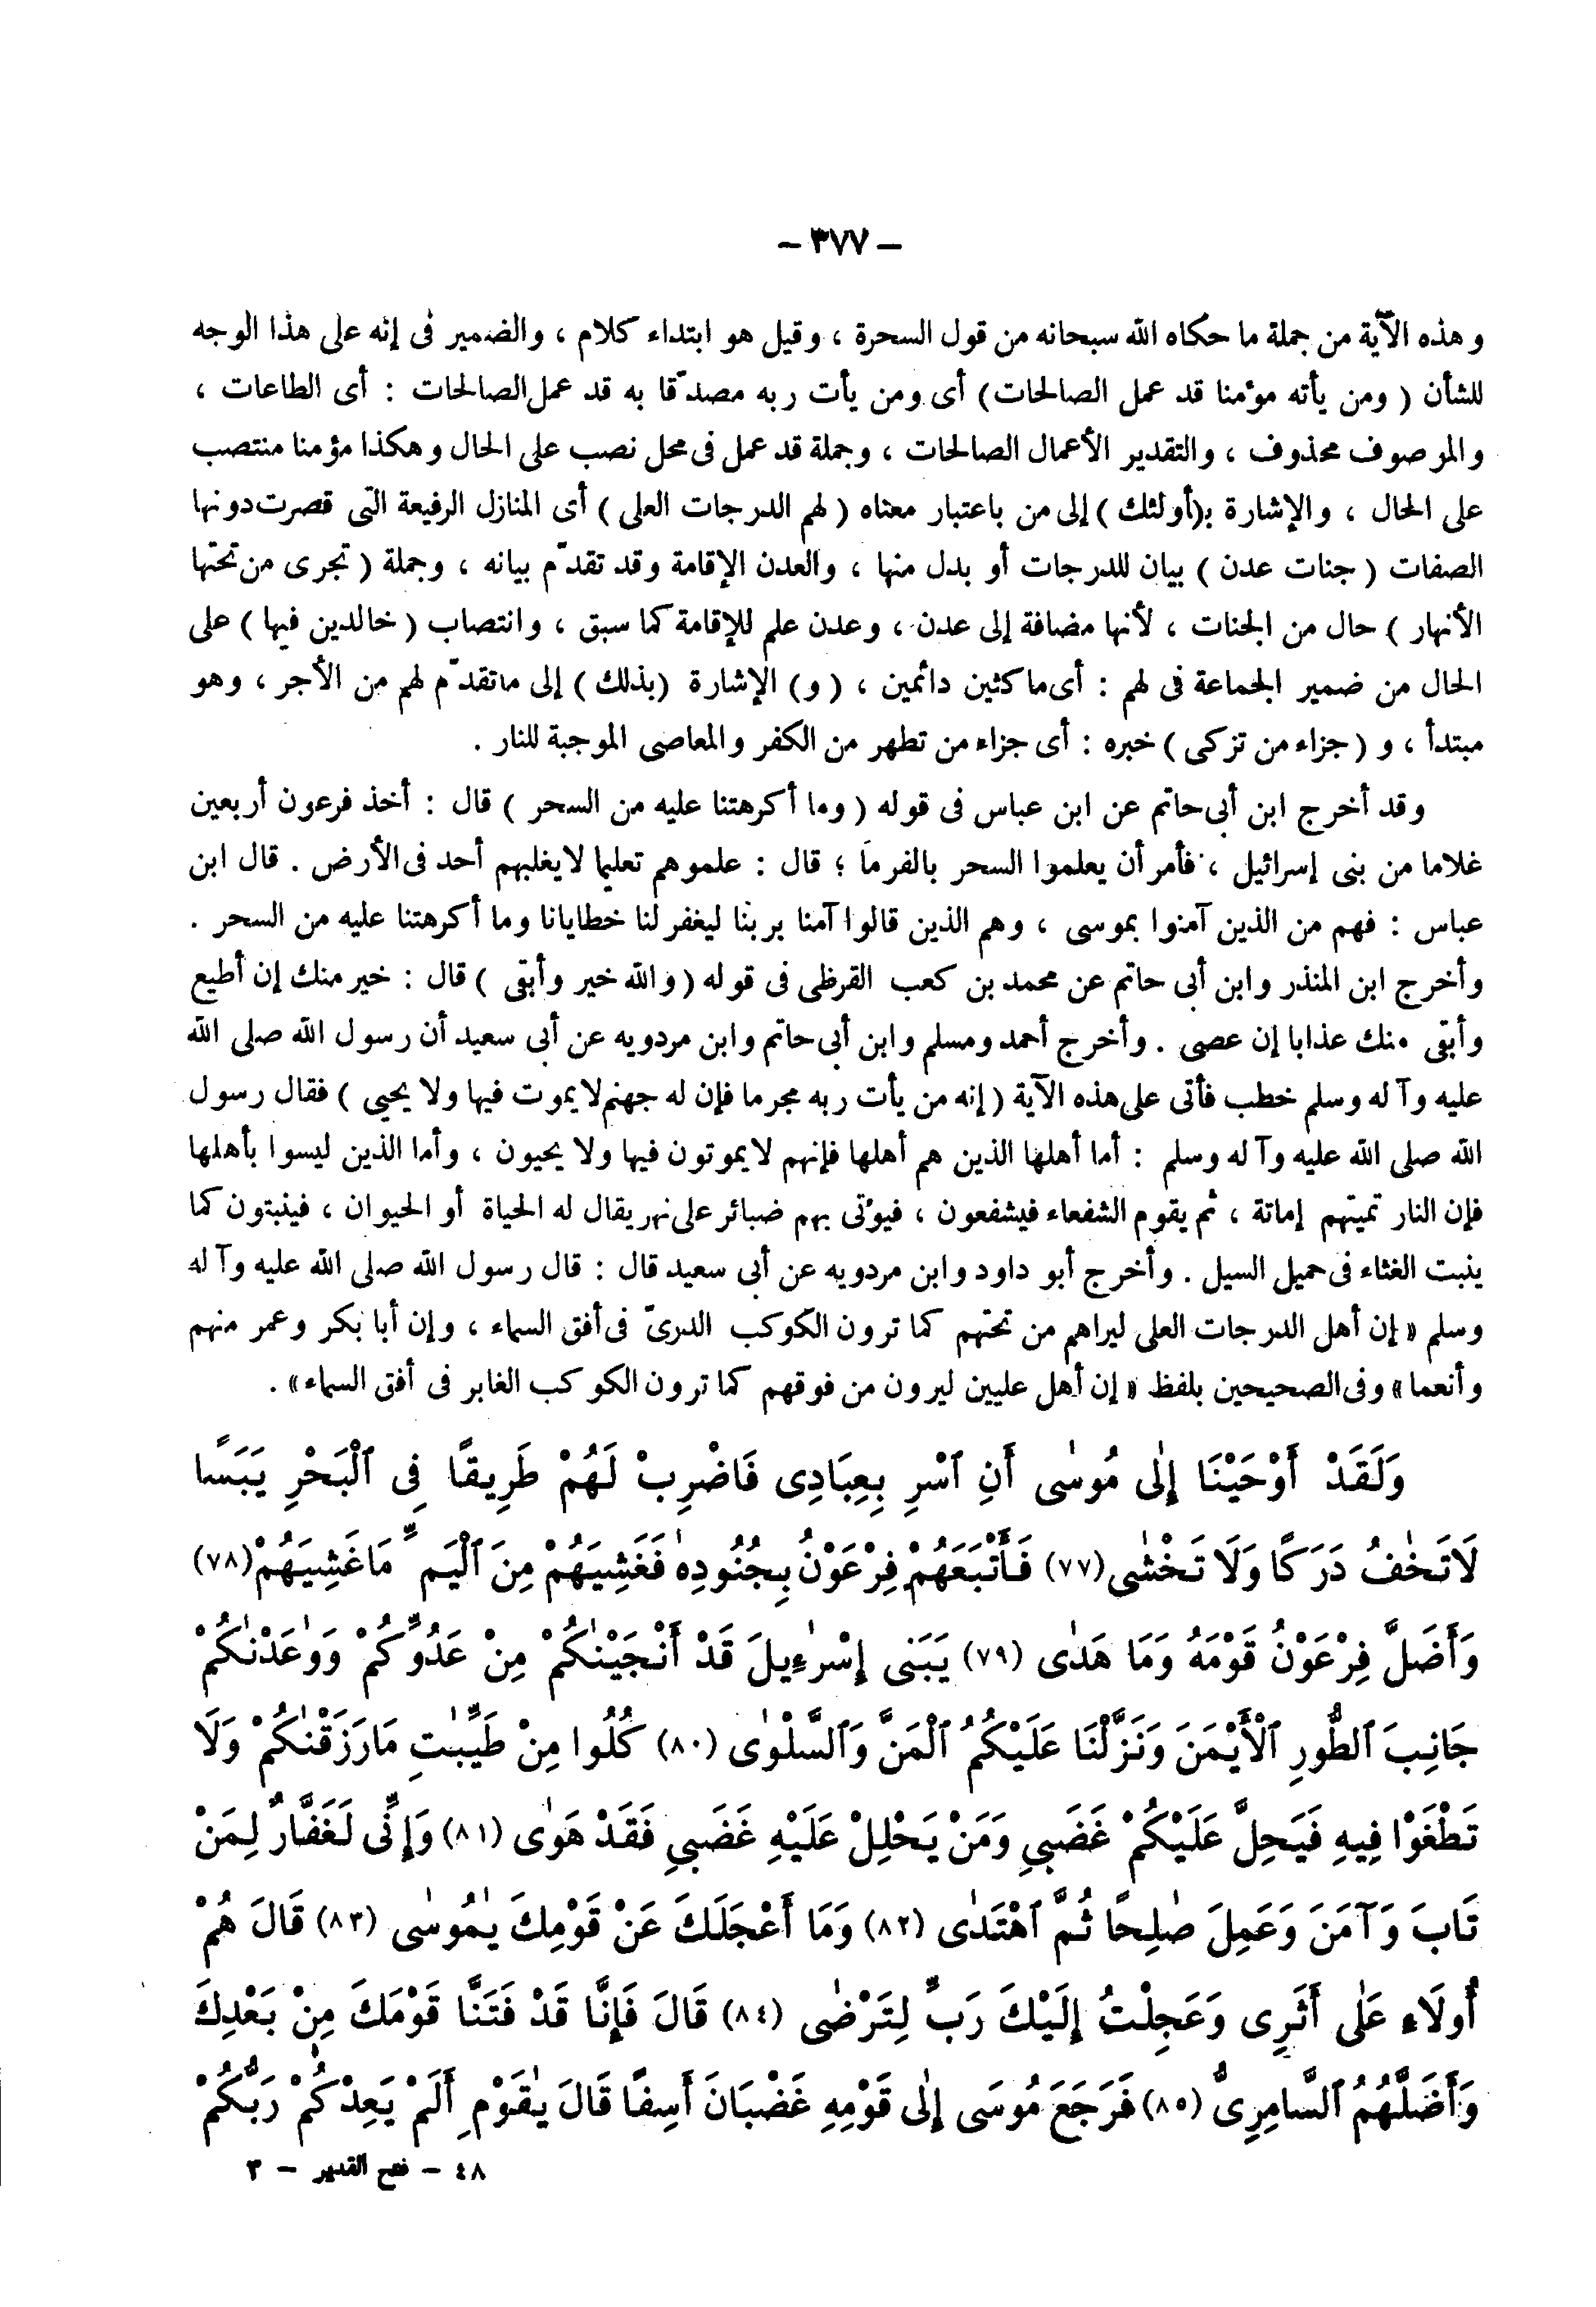 – ٣٧٧ –
وهذه الآية من جملة ما حكاه الله سبحانه من قول السحرة ، وقيل هو ابتداء كلام ، والضمير فى إنه على هذا الوجه
للشأن ( ومن يأته مؤمنا قد عمل الصالحات ) أى ومن يأت ربه مصدّقا به قد عمل الصالحات : أى الطاعات ،
والموصوف محذوف ، والتقدير الأعمال الصالحات ، وجملة قد عمل فى محل نصب على الحال وهكذا مؤمنا منتصب
على الحال ، والإشارة ب(أولئك ) إلى من باعتبار معناه ( لهم الدرجات العلى ) أى المنازل الرفيعة التى قصرت دونها
الصفات ( جنات عدن ) بيان للدرجات أو بدل منها ، والعدن الإقامة وقد تقدّم بيانه ، وجملة ( تجرى من تحتها
الأنهار ) حال من الجنات ، لأنها مضافة إلى عدن ، وعدن علم للإقامة كما سبق ، وانتصاب ( خالدين فيها ) على
الحال من ضمير الجماعة فى لهم : أى ماكثين دائمين ، ( و ) الإشارة ( بذلك ) إلى ماتقدّم لهم من الأجر ، وهو
مبتدأ ، و ( جزاء من تزكى ) خبره : أى جزاء من تطهر من الكفر والمعاصى الموجبة للنار .
وقد أخرج ابن أبى حاتم عن ابن عباس فى قوله ( وما أكرهتنا عليه من السحر ) قال : أخذ فرعون أربعين
غلاما من بنى إسرائيل ، فأمر أن يعلموا السحر بالفرما ؛ قال : علموهم تعليما لايغلبهم أحد فى الأرض . قال ابن
عباس : فهم من الذين آمنوا بموسى ، وهم الذين قالوا آمنا بربنا ليغفر لنا خطايانا وما أكرهتنا عليه من السحر .
وأخرج ابن المنذر وابن أبى حاتم عن محمد بن كعب القرظى فى قوله ( والله خير وأبقى ) قال : خير منك إن أطيع
وأبقى منك عذابا إن عصى . وأخرج أحمد ومسلم وابن أبى حاتم وابن مردويه عن أبى سعيد أن رسول الله صلى الله
عليه وآله وسلم خطب فأتى على هذه الآية ( إنه من يأت ربه مجرما فإن له جهنم لايموت فيها ولا يحيى ) فقال رسول
الله صلى الله عليه وآله وسلم : أما أهلها الذين هم أهلها فإنهم لايموتون فيها ولا يحيون ، وأما الذين ليسوا بأهلها
فإن النار تميتهم إماتة ، ثم يقوم الشفعاء فيشفعون ، فيؤتى بهم ضبائر على نهر يقال له الحياة أو الحيوان ، فينبتون كما
ينبت الغثاء فى حميل السيل . وأخرج أبو داود وابن مردويه عن أبى سعيد قال : قال رسول الله صلى الله عليه وآله
وسلم « إن أهل الدرجات العلى ليراهم من تحتهم كما ترون الكوكب الدرىّ فى أفق السماء ، وإن أبا بكر وعمر منهم
وأنعما » وفى الصحيحين بلفظ « إن أهل عليين ليرون من فوقهم كما ترون الكوكب الغابر فى أفق السماء » .
وَلَقَدْ أَوْحَيْنَا إِلٰى مُوسٰى أَنِ ٱسْرِ بِعِبَادِى فَاضْرِبْ لَهُمْ طَرِيقًا فِى ٱلْبَحْرِ يَبَسًا
لَاتَخٰفُ دَرَكًا وَلَا تَخْشٰى (٧٧) فَأَتْبَعَهُمْ فِرْعَوْنُ بِجُنُودِهٖ فَغَشِيَهُمْ مِنَ ٱلْيَمِّ مَاغَشِيَهُمْ (٧٨)
وَأَضَلَّ فِرْعَوْنُ قَوْمَهُ وَمَا هَدٰى (٧٩) يَبَنِى إِسْرٰءِيلَ قَدْ أَنْجَيْنٰكُمْ مِنْ عَدُوِّكُمْ وَوٰعَدْنٰكُمْ
جَانِبَ ٱلطُّورِ ٱلْأَيْمَنَ وَنَزَّلْنَا عَلَيْكُمُ ٱلْمَنَّ وَٱلسَّلْوٰى (٨٠) كُلُوا مِنْ طَيِّبٰتِ مَارَزَقْنٰكُمْ وَلَا
تَطْغَوْا فِيهِ فَيَحِلَّ عَلَيْكُمْ غَضَبِى وَمَنْ يَحْلِلْ عَلَيْهِ غَضَبِى فَقَدْ هَوٰى (٨١) وَإِنِّى لَغَفَّارٌ لِمَنْ
تَابَ وَآمَنَ وَعَمِلَ صٰلِحًا ثُمَّ ٱهْتَدٰى (٨٢) وَمَا أَعْجَلَكَ عَنْ قَوْمِكَ يٰمُوسٰى (٨٣) قَالَ هُمْ
أُولَاءِ عَلٰى أَثَرِى وَعَجِلْتُ إِلَيْكَ رَبِّ لِتَرْضٰى (٨٤) قَالَ فَإِنَّا قَدْ فَتَنَّا قَوْمَكَ مِنْ بَعْدِكَ
وَأَضَلَّهُمُ ٱلسَّامِرِىُّ (٨٥) فَرَجَعَ مُوسَى إِلٰى قَوْمِهِ غَضْبَانَ أَسِفًا قَالَ يٰقَوْمِ أَلَمْ يَعِدْكُمْ رَبُّكُمْ
٤٨ – فتح القدير – ٣